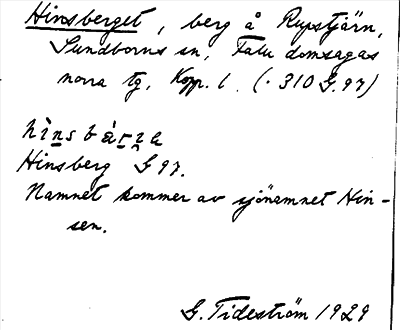 Hinsberget, berg å Rupstjärn,
Sundborns sn, Falu domsagas
norra tg, Kopp. l. (· 310 G.97)
hìnsbàrɪa
Hinsberg G 97.
Namnet kommer av sjönamnet Hin-
sen.
G. Tideström 1929